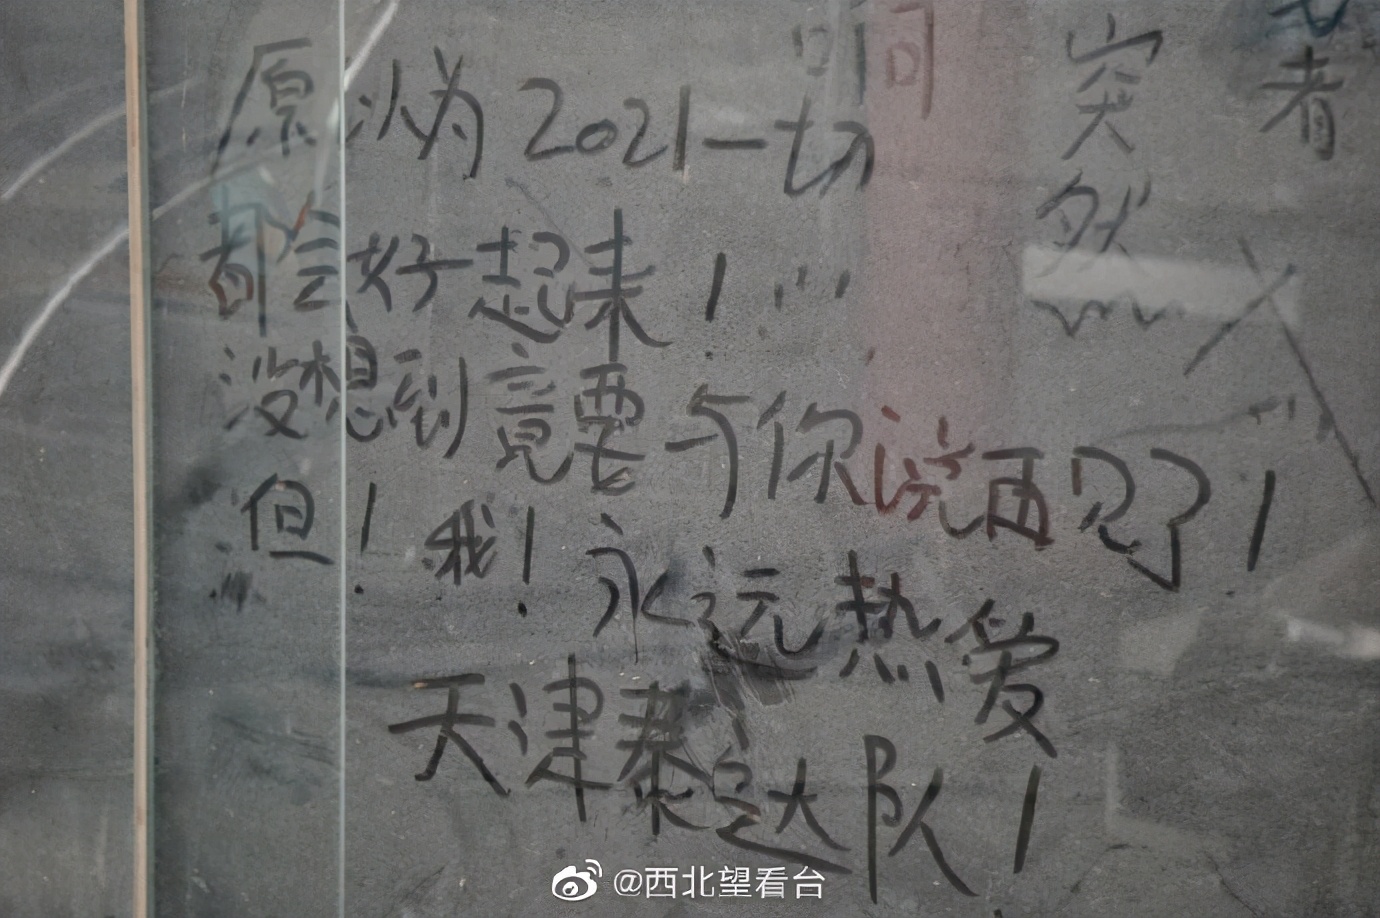 原以为2021一切
都会好起来！…
没想到竟要与你说再见了！
但！我！永远热爱
天津泰达队！
突然
者
@西北望看台